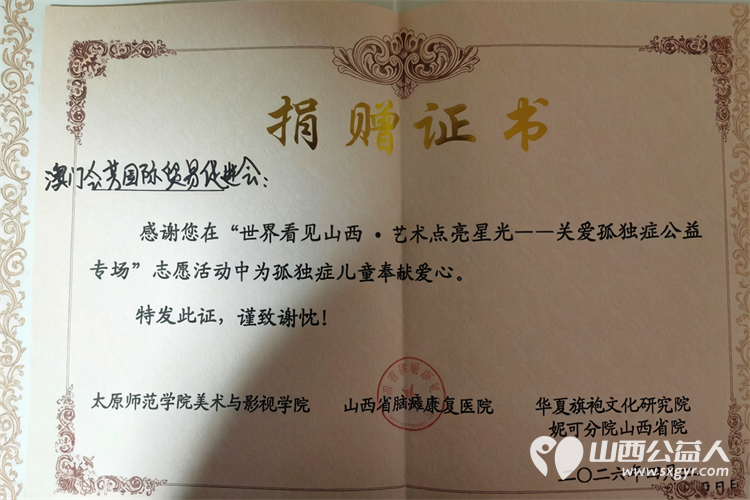 捐赠证书
澳门会英国际贸易促进会：
感谢您在“世界看见山西·艺术点亮星光——关爱孤独症公益
专场”志愿活动中为孤独症儿童奉献爱心。
特发此证，谨致谢忱！
太原师范学院美术与影视学院
山西省脑瘫康复医院
华夏旗袍文化研究院
妮可分院山西省院
二〇二六年四月
山西公益人
www.sxgyr.com